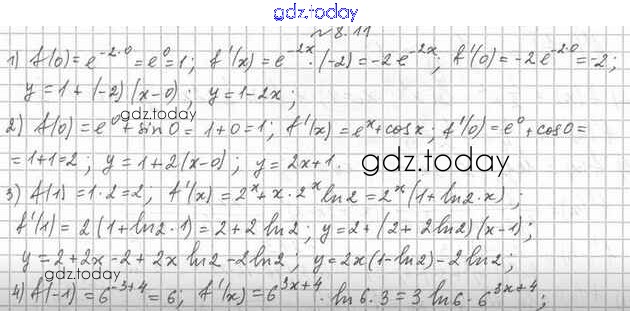 gdz.today
№ 8.11
1) f(0) = e^{-2·0} = e^0 = 1; f'(x) = e^{-2x}·(-2) = -2e^{-2x}; f'(0) = -2e^{-2·0} = -2;
y = 1 + (-2)(x-0); y = 1-2x;
gdz.today
2) f(0) = e^0 + sin0 = 1+0 = 1; f'(x) = e^x + cosx; f'(0) = e^0 + cos0 =
= 1+1 = 2; y = 1+2(x-0); y = 2x+1.
gdz.today
3) f(1) = 1·2 = 2, f'(x) = 2^x + x·2^x ln2 = 2^x(1+ln2·x);
f'(1) = 2(1+ln2·1) = 2+2ln2; y = 2+(2+2ln2)(x-1);
y = 2+2x-2+2x ln2-2ln2; y = 2x(1-ln2)-2ln2;
gdz.today
4) f(-1) = 6^{-3+4} = 6; f'(x) = 6^{3x+4}·ln6·3 = 3ln6·6^{3x+4};